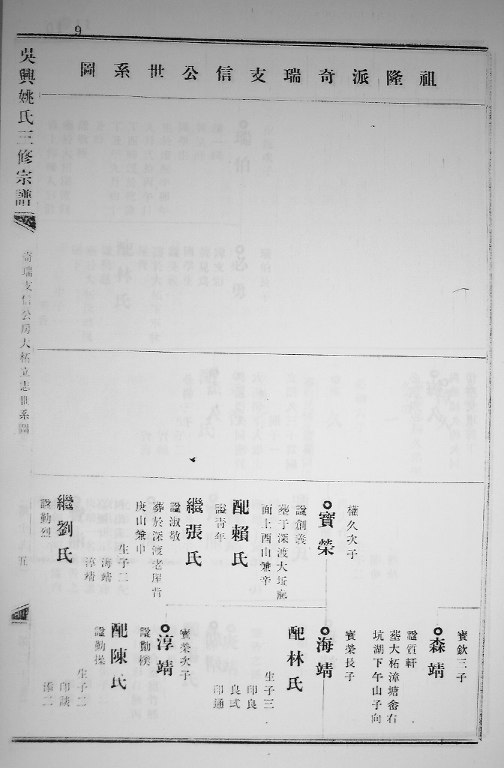 9
祖隆派奇瑞支信公世系圖
吳興姚氏三修宗譜
奇瑞支信公房大柘立志世系圖
五
權久次子
寶榮
諡創義
葬于深渡大坵蔴
面上酉山兼辛
配賴氏
諡青年
繼張氏
諡淑敬
葬於深渡老屋背
庚山兼申
生子二
海靖
淳靖
繼劉氏
諡勤烈
寶欽三子
森靖
諡質軒
墓大柘漳塘畲右
坑湖下午山子向
寶榮長子
海靖
配林氏
生子三
印良
良弍
印通
寶榮次子
淳靖
諡勤樸
配陳氏
諡勤操
生子二